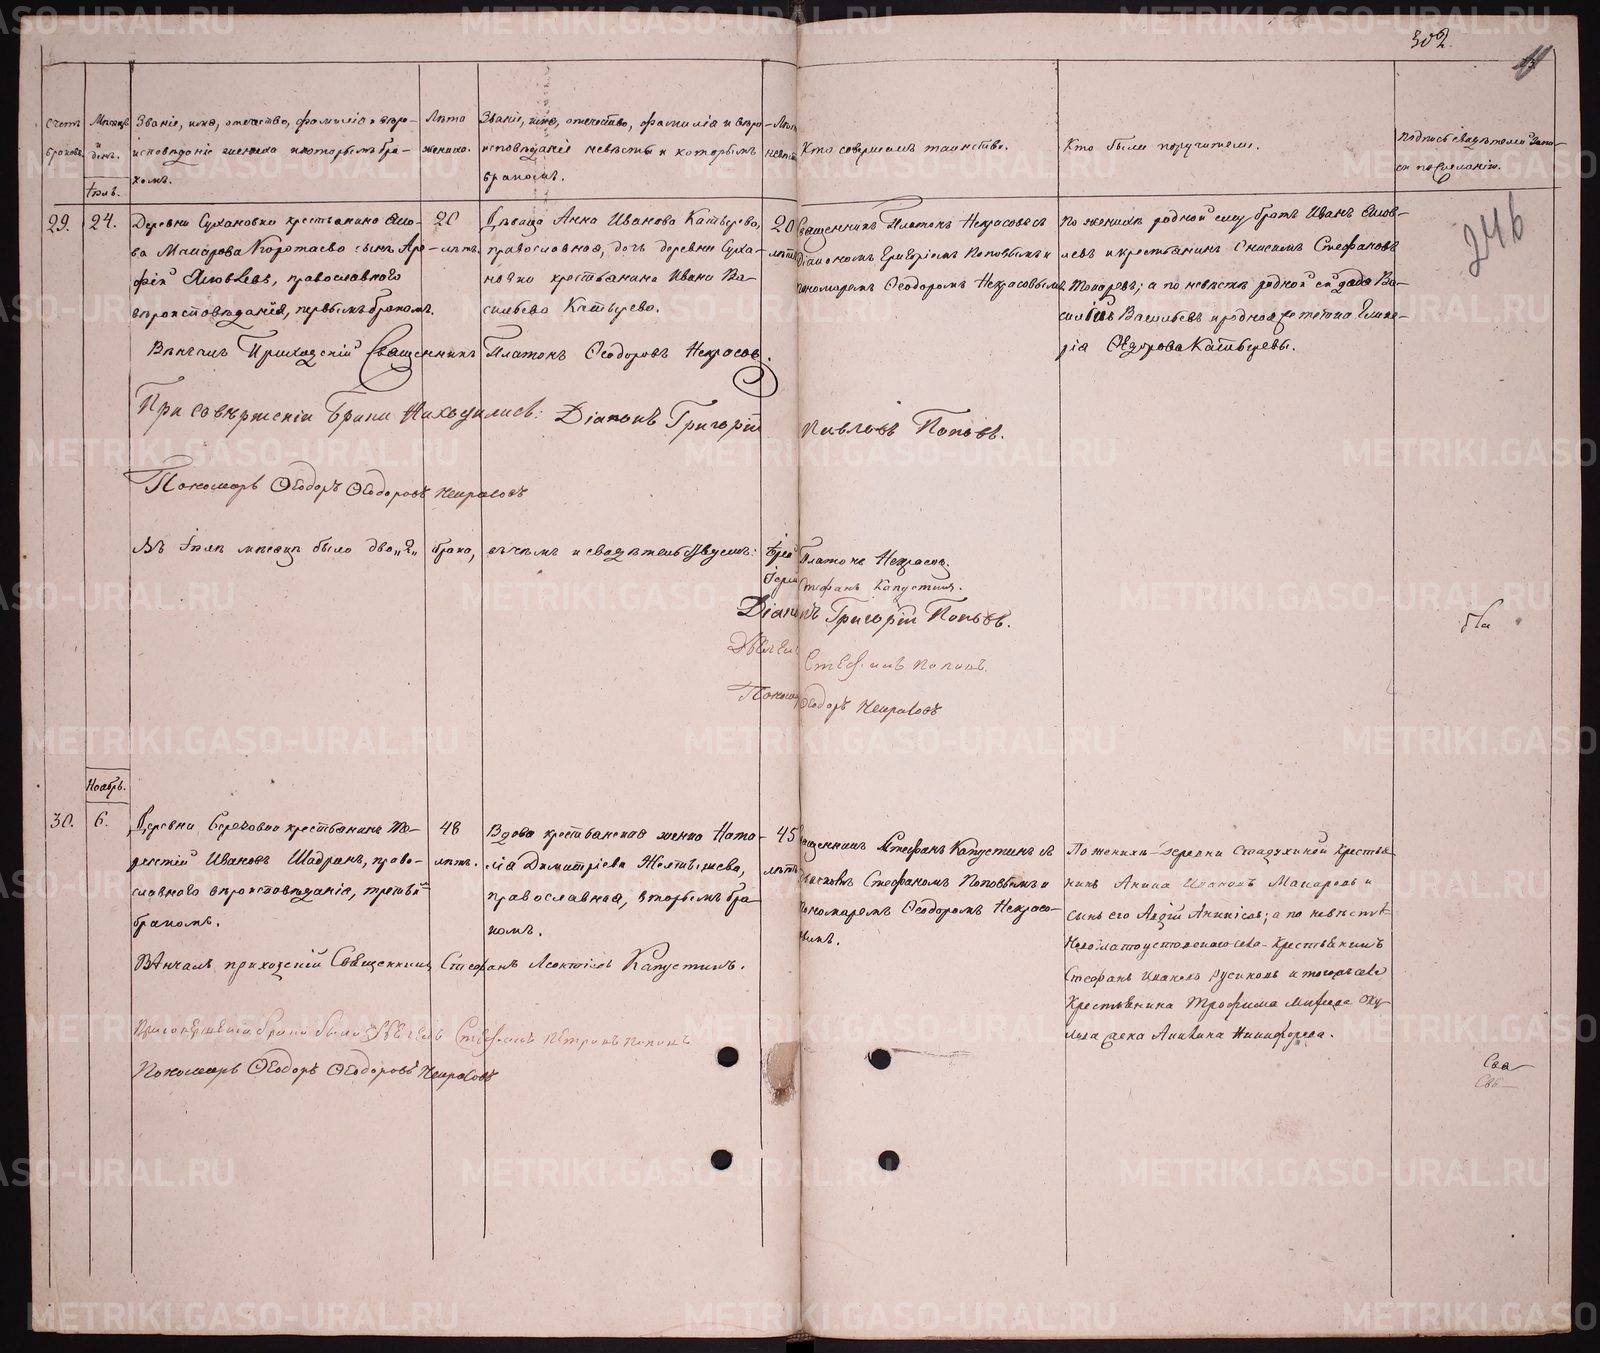 302.
11
246
Счетъ браковъ.
Мѣсяцъ и день.
Званіе, имя, отечество, фамилія и вѣро-
исповѣданіе жениха и которымъ бра-
комъ.
Лѣта
жениха.
Званіе, имя, отечество, фамилія и вѣро-
исповѣданіе невѣсты и которымъ
бракомъ.
Лѣта
невѣсты
Кто совершалъ таинство.
Кто были поручители.
Подпись свидѣтелей запи-
си по желанію.
Іюль.
29.
24.
Деревни Сухановки крестьянина Яко-
ва Макарова Коротаева сынъ Аро-
фій Яковлевъ, православнаго
вѣроисповѣданія, первымъ бракомъ.
20
лѣтъ.
Дѣвица Анна Иванова Катырева,
православная, дочь деревни Суха-
новки крестьянина Ивана Ва-
сильева Катырева.
20
лѣтъ
Священникъ Платонъ Некрасовъ съ
Діакономъ Григоріемъ Поповымъ и
пономаремъ Ѳеодоромъ Некрасовымъ.
По женихѣ родной ему братъ Иванъ Яков-
левъ и крестьянинъ Онисимъ Стефановъ
Токаревъ; а по невѣстѣ родной ей дядя Ва-
силій Васильевъ и родная тетка Глике-
рія Ѳедорова Катыревы.
Вѣнчалъ Приходскій Священникъ Платонъ Ѳеодоровъ Некрасовъ.
При совѣршеніи Брака Находились: Діаконъ Григорій Павловъ Поповъ.
Пономарь Ѳеодоръ Ѳеодоровъ Некрасовъ
Въ Іюлѣ мѣсяцѣ было два „2„ брака, въ чемъ и свидѣтельствуемъ:
Платонъ Некрасовъ.
Стефанъ Капустинъ.
Діаконъ Григорій Поповъ.
Стефанъ Поповъ.
Пономарь Ѳеодоръ Некрасовъ
Ноябрь.
30.
6.
Деревни Береговой крестьянинъ
Ивановъ Шадринъ, право-
славнаго вѣроисповѣданія, третьимъ
бракомъ.
48
лѣтъ.
Вдова крестьянская женка Ната-
лія Димитріева Желтышева,
православная, вторымъ бра-
комъ.
45
лѣтъ
Священникъ Стефанъ Капустинъ съ
Стефаномъ Поповымъ и
пономаремъ Ѳеодоромъ Некрасо-
вымъ.
По женихѣ деревни Стадухиной крестья-
нинъ Акила Ивановъ Макаровъ и
сынъ его Авдій Акиловъ; а по невѣстѣ
Новозлатоустовскаго села крестьянинъ
Стефанъ Ивановъ Русиновъ и тогоже села
крестьянина Трофима
Никифорова.
Вѣнчалъ приходскій Священникъ Стефанъ Леонтіевъ Капустинъ.
При совершеніи брака были: Стефанъ Петровъ Поповъ
Пономарь Ѳеодоръ Ѳеодоровъ Некрасовъ